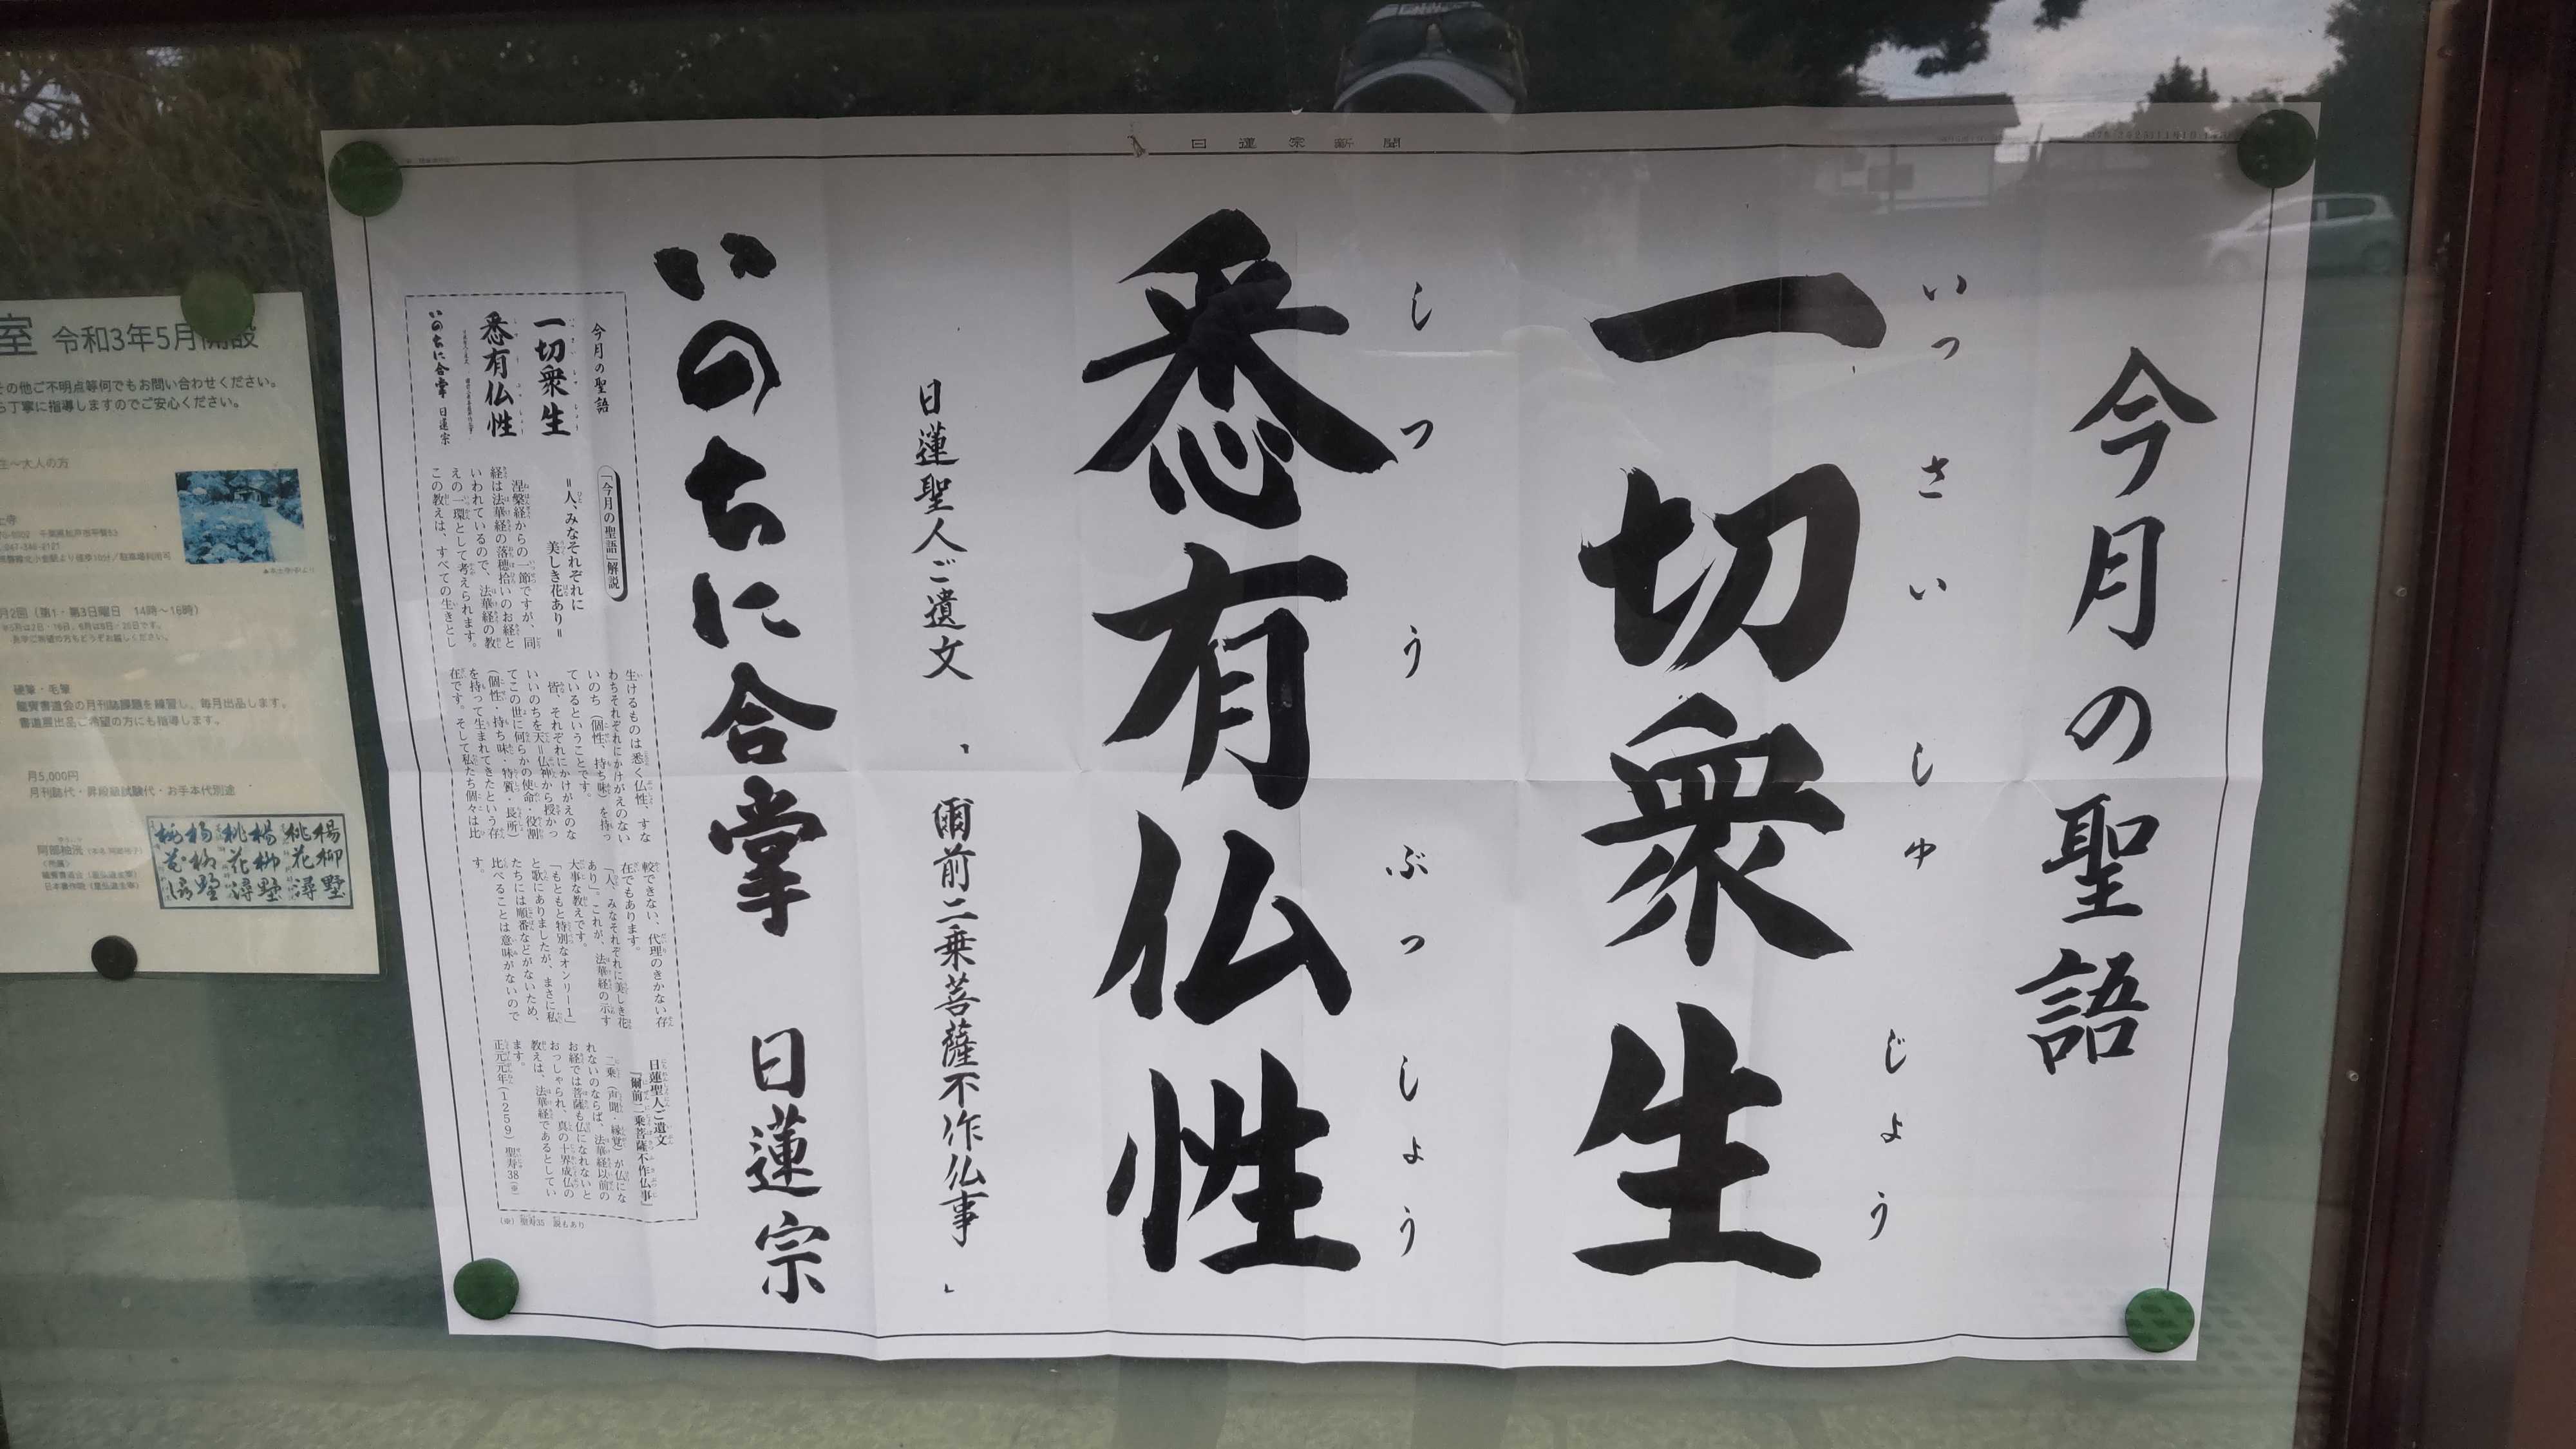 日蓮宗新聞
今月の聖語
いっさいしゅじょう
一切衆生
しつうぶっしょう
悉有仏性
日蓮聖人ご遺文
「爾前二乗菩薩不作仏事」
いのちに合掌 日蓮宗
今月の聖語
一切衆生
悉有仏性
いのちに合掌 日蓮宗
「今月の聖語」解説
＝人、みなそれぞれに
美しき花あり＝
涅槃経からの一節ですが、同
経は法華経の落穂拾いのお経と
いわれているので、法華経の教
えの一環として考えられます。
この教えは、すべての生きとし
生けるものは悉く仏性、すな
わちそれぞれにかけがえのない
いのち（個性、持ち味）を持っ
ているということです。
皆、それぞれにかけがえのな
いいのちを天＝仏神から授かっ
てこの世に何らかの使命・役割
（個性・持ち味・特質・長所）
を持って生まれてきたという存
在です。そして私たち個々は比
較できない、代理のきかない存
在でもあります。
「人、みなそれぞれに美しき花
あり」。これが、法華経の示す
大事な教えです。
「もともと特別なオンリー１」
と歌にありましたが、まさに私
たちには順番などがないため、
比べることは意味がないので
す。
日蓮聖人ご遺文
『爾前二乗菩薩不作仏事』
二乗（声聞・縁覚）が仏にな
れないのならば、法華経以前の
お経では菩薩も仏になれないと
おっしゃられ、真の十界成仏の
教えは、法華経であるとしてい
ます。
正元元年（1259）聖寿38（※）
（※）聖寿35 説もあり
室 令和3年5月開設
その他ご不明点等何でもお問い合わせください。
丁寧に指導しますのでご安心ください。
生～大人の方
月2回（第1・第3日曜日 14時～16時）
硬筆・毛筆
龍賓書道会の月刊誌課題を練習し、毎月出品します。
書道展出品ご希望の方にも指導します。
月5,000円
月刊誌代・昇段級試験代・お手本代別途
楊柳墅
桃花潯